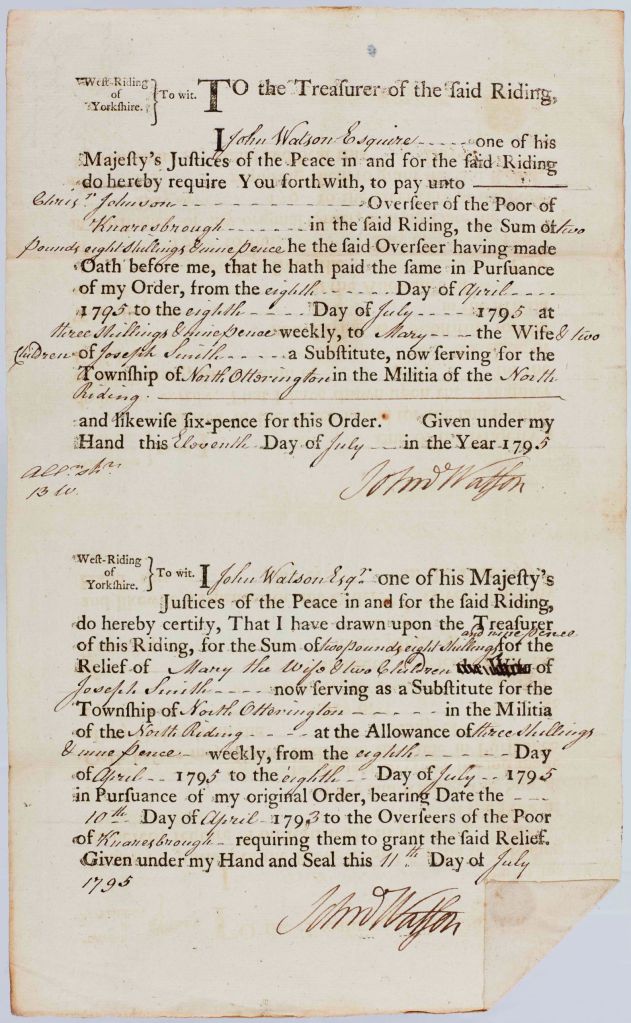 West-Riding of Yorkshire. } To wit. TO the Treasurer of the said Riding,
I John Watson Esquire - - - - - one of his
Majesty's Justices of the Peace in and for the said Riding
do hereby require You forthwith, to pay unto
Chrisr. Johnson - - - - - - - - - - Overseer of the Poor of
Knaresbrough - - - - - - in the said Riding, the Sum of two
pounds eight shillings & nine pence he the said Overseer having made
Oath before me, that he hath paid the same in Pursuance
of my Order, from the eighth - - - - - Day of April - - - -
1795 to the eighth - - - - Day of July - - - - 1795 at
three shillings & nine pence weekly, to Mary - - - the Wife & two
Children of Joseph Smith - - - - - a Substitute, now serving for the
Township of North Otterington in the Militia of the North
Riding.
and likewise six-pence for this Order. Given under my
Hand this Eleventh Day of July - - in the Year 1795
13 w.
John Watson
West-Riding of Yorkshire. } To wit. I John Watson Esqr. one of his Majesty's
Justices of the Peace in and for the said Riding,
do hereby certify, That I have drawn upon the Treasurer
and nine pence
of this Riding, for the Sum of two pounds eight shillings for the
Relief of Mary the Wife & two Children the Wife of
Joseph Smith - - - - now serving as a Substitute for the
Township of North Otterington - - - - - in the Militia
of the North Riding - - - - at the Allowance of three shillings
& nine pence - weekly, from the eighth - - - - - Day
of April - - 1795 to the eighth - - Day of July - - 1795
in Pursuance of my original Order, bearing Date the - - -
10th Day of April 1793 to the Overseers of the Poor
of Knaresbrough - requiring them to grant the said Relief.
Given under my Hand and Seal this 11th Day of July
1795
John Watson